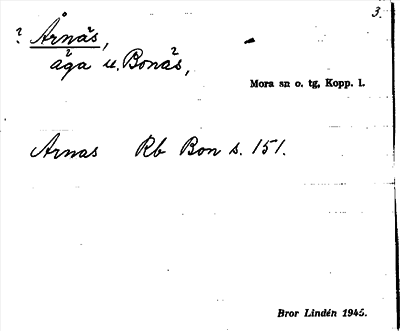 3.
? Årnäs,
äga u. Bonäs,
Mora sn o. tg, Kopp. l.
Arnas Rb Bon s. 151.
Bror Lindén 1945.